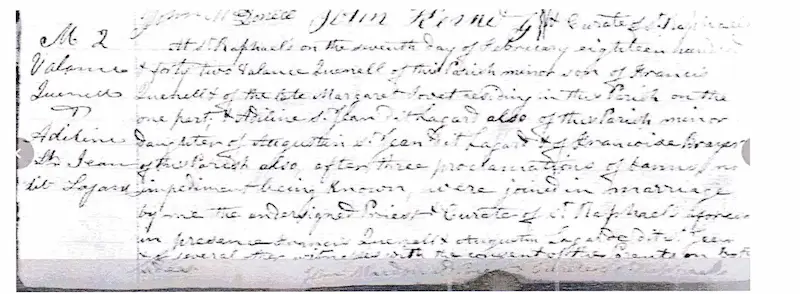 John McDonell John Kerne Curate of St Raphaels
M 2
Valance
Quenell
&
Adiline
St Jean
dit Lagard
At St Raphaels on the seventh day of February eighteen hundred
& forty two Valance Quenell of this Parish minor son of Francis
Quenell & of the late Margaret Jovet residing in this Parish on the
one part & Adiline St Jean dit Lagard also of this Parish minor
Daughter of Augustin St Jean dit Lagard & of Francoise
of this Parish also, after three proclamations of banns, no
impediment being known, were joined in marriage
by me the undersigned Priest & Curate of St Raphaels
in presence Francis Quenell & Augustin Lagard dit St Jean
& of several other witnesses with the consent of the Parents on both
sides